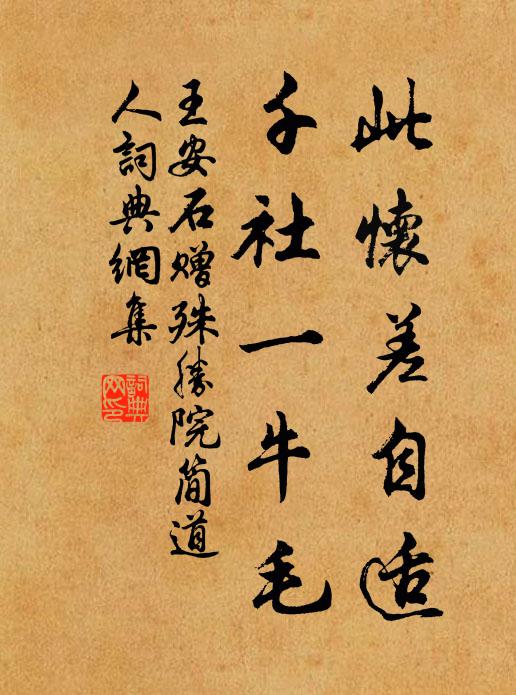 此懷差自适
千社一牛毛
王安石赠殊勝院简道
人詞典網集
詞典网印